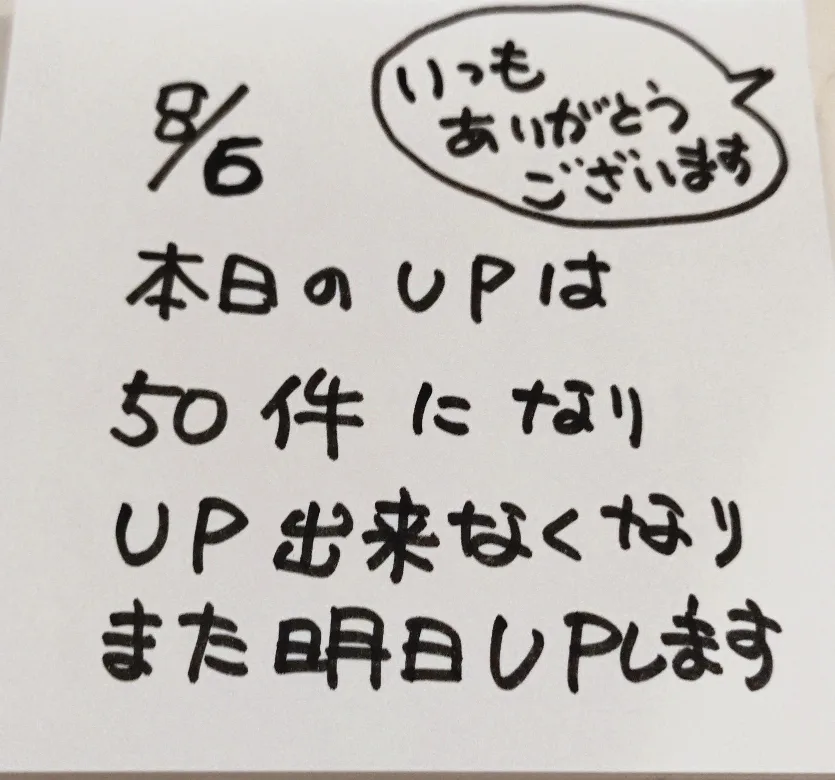 8/6
いつも
ありがとう
ございます
本日のUPは
50件になり
UP出来なくなり
また明日UPします